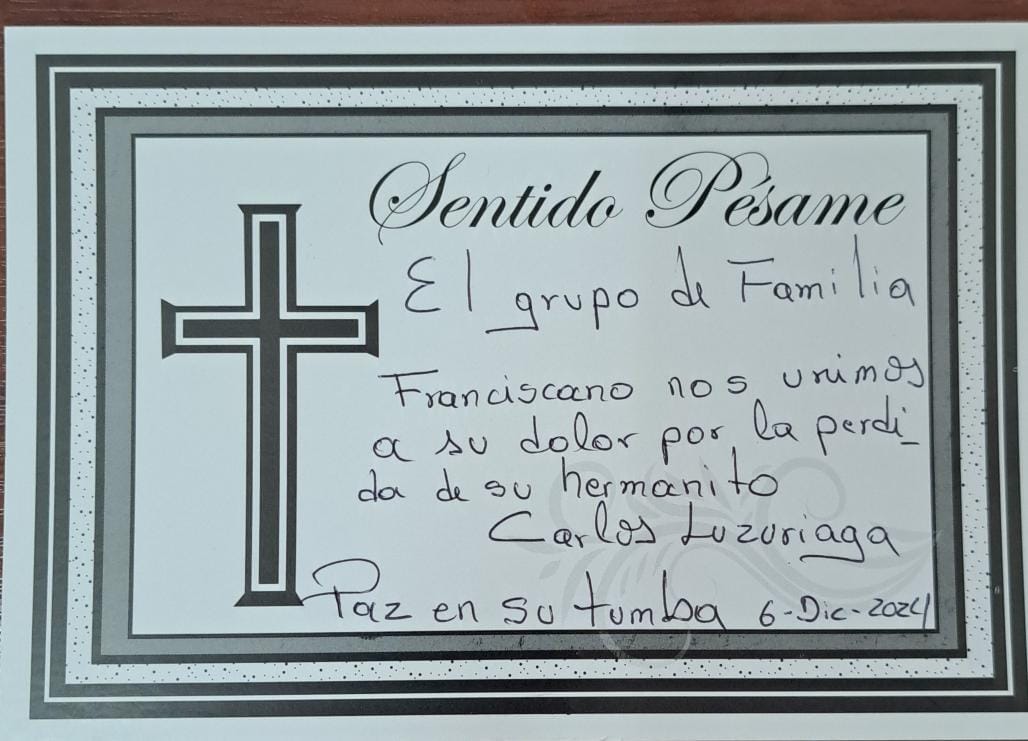 Sentido Pésame
El grupo de Familia
Franciscano nos unimos
a su dolor por la perdi_
da de su hermanito
Carlos Luzuriaga
Paz en su tumba 6-Dic-2024